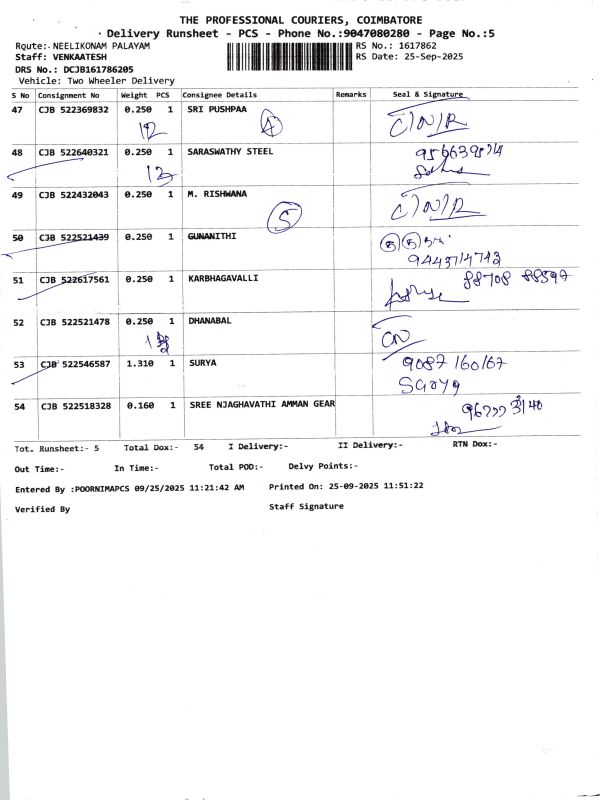 THE PROFESSIONAL COURIERS, COIMBATORE
Delivery Runsheet - PCS - Phone No.:9047080280 - Page No.:5
Route:- NEELIKONAM PALAYAM RS No.: 1617862
Staff: VENKAATESH RS Date: 25-Sep-2025
DRS No.: DCJB161786205
Vehicle: Two Wheeler Delivery
S No Consignment No Weight PCS Consignee Details Remarks Seal & Signature
47 CJB 522369832 0.250 1 SRI PUSHPAA C/N/R
12 4
48 CJB 522640321 0.250 1 SARASWATHY STEEL
13
49 CJB 522432043 0.250 1 M. RISHWANA C/N/R
5
50 CJB 522521439 0.250 1 GUNANITHI
9443714743
51 CJB 522617561 0.250 1 KARBHAGAVALLI 88708 88597
52 CJB 522521478 0.250 1 DHANABAL CN
53 CJB 522546587 1.310 1 SURYA 9087 160167
Surya
54 CJB 522518328 0.160 1 SREE NJAGHAVATHI AMMAN GEAR
Tot. Runsheet:- 5 Total Dox:- 54 I Delivery:- II Delivery:- RTN Dox:-
Out Time:- In Time:- Total POD:- Delvy Points:-
Entered By :POORNIMAPCS 09/25/2025 11:21:42 AM Printed On: 25-09-2025 11:51:22
Verified By Staff Signature